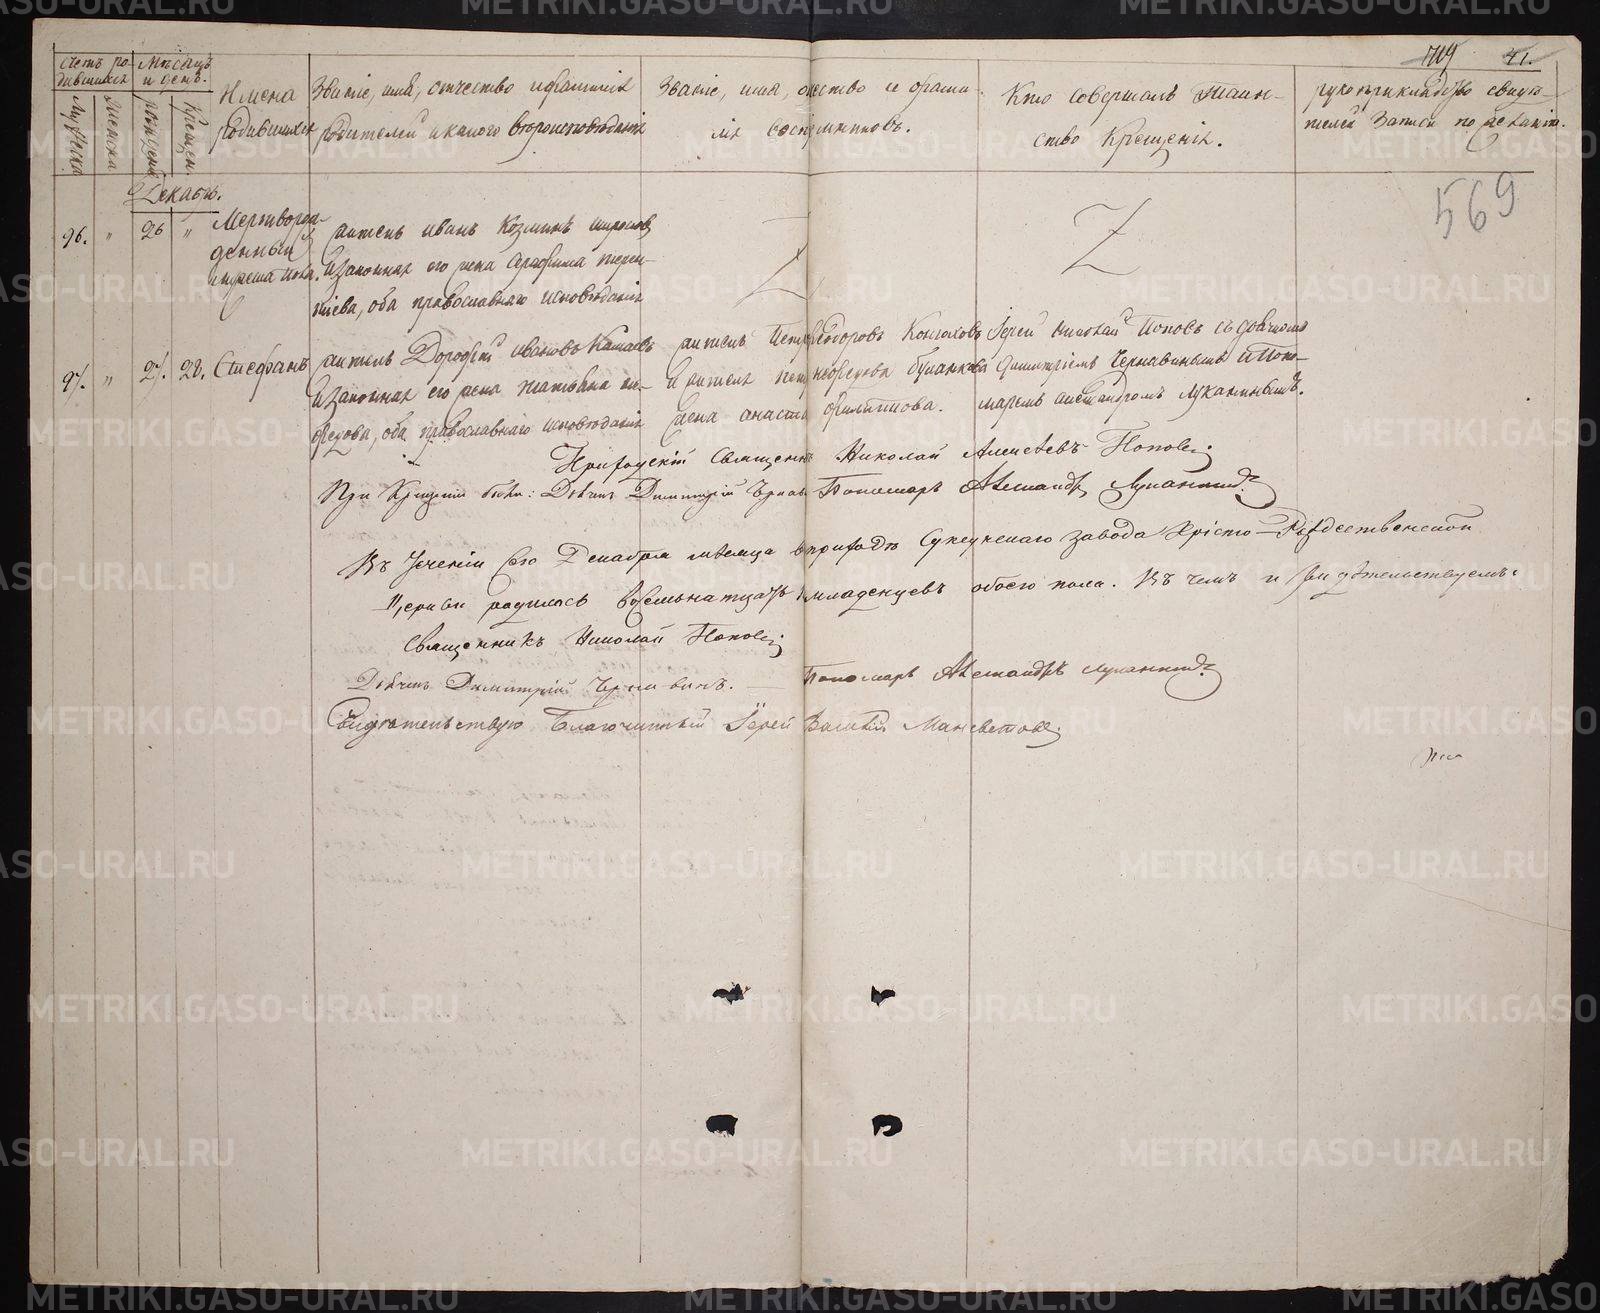 709 41.
Счетъ ро-
дившихся
Мѣсяцъ
и день.
Мужеска
Женска
рожденія
Крещен.
Имена
родившихся
Званіе, имя, отчество и фамилія
родителей и какого вѣроисповѣданія
Званіе, имя, отчество и фами-
лія воспріемниковъ.
Кто совершалъ таин-
ство Крещенія.
рукоприкладство свидѣ-
телей записи по желанію.
569
Декабрь.
96. " 26 "
Мертворож-
денный
мужеска пола.
житель Иванъ Козминъ
и законная его жена
оба православнаго исповѣданія
97. " 27. 28. Стефанъ
житель Дорофей Ивановъ
и законная его жена Татьяна
оба православнаго исповѣданія
житель Петръ Ѳеодоровъ
и жителя
жена Филиппова.
Іерей Николай Поповъ съ дьячкомъ
Димитріемъ Чернавинымъ и Поно-
маремъ Александромъ Луканинымъ.
Приходскій Священникъ Николай Алексѣевъ Поповъ
При Крещеніи были: Дьячекъ Димитрій Чернав Пономарь Александръ Луканинъ
Въ теченіи сего Декабря мѣсяца въ приходѣ Суксунскаго завода Христо-Рождественской
Церкви родилось восемьнатцать младенцевъ обоего пола. Въ чемъ и свидѣтельствуемъ:
Священникъ Николай Поповъ
Дьячекъ Димитрій Чернавинъ. — Пономарь Александръ Луканинъ
Свидѣтельствую Благочинный Іерей Василій Мансветовъ
METRIKI.GASO-URAL.RU